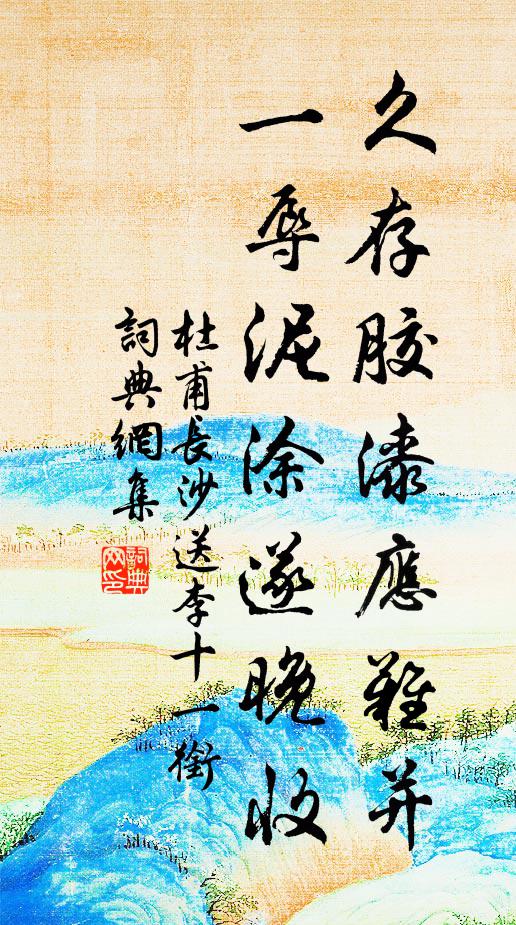 久存胶漆應難并
一辱泥涂遂晚收
杜甫長沙送李十一銜
詞典網集
詞典網印